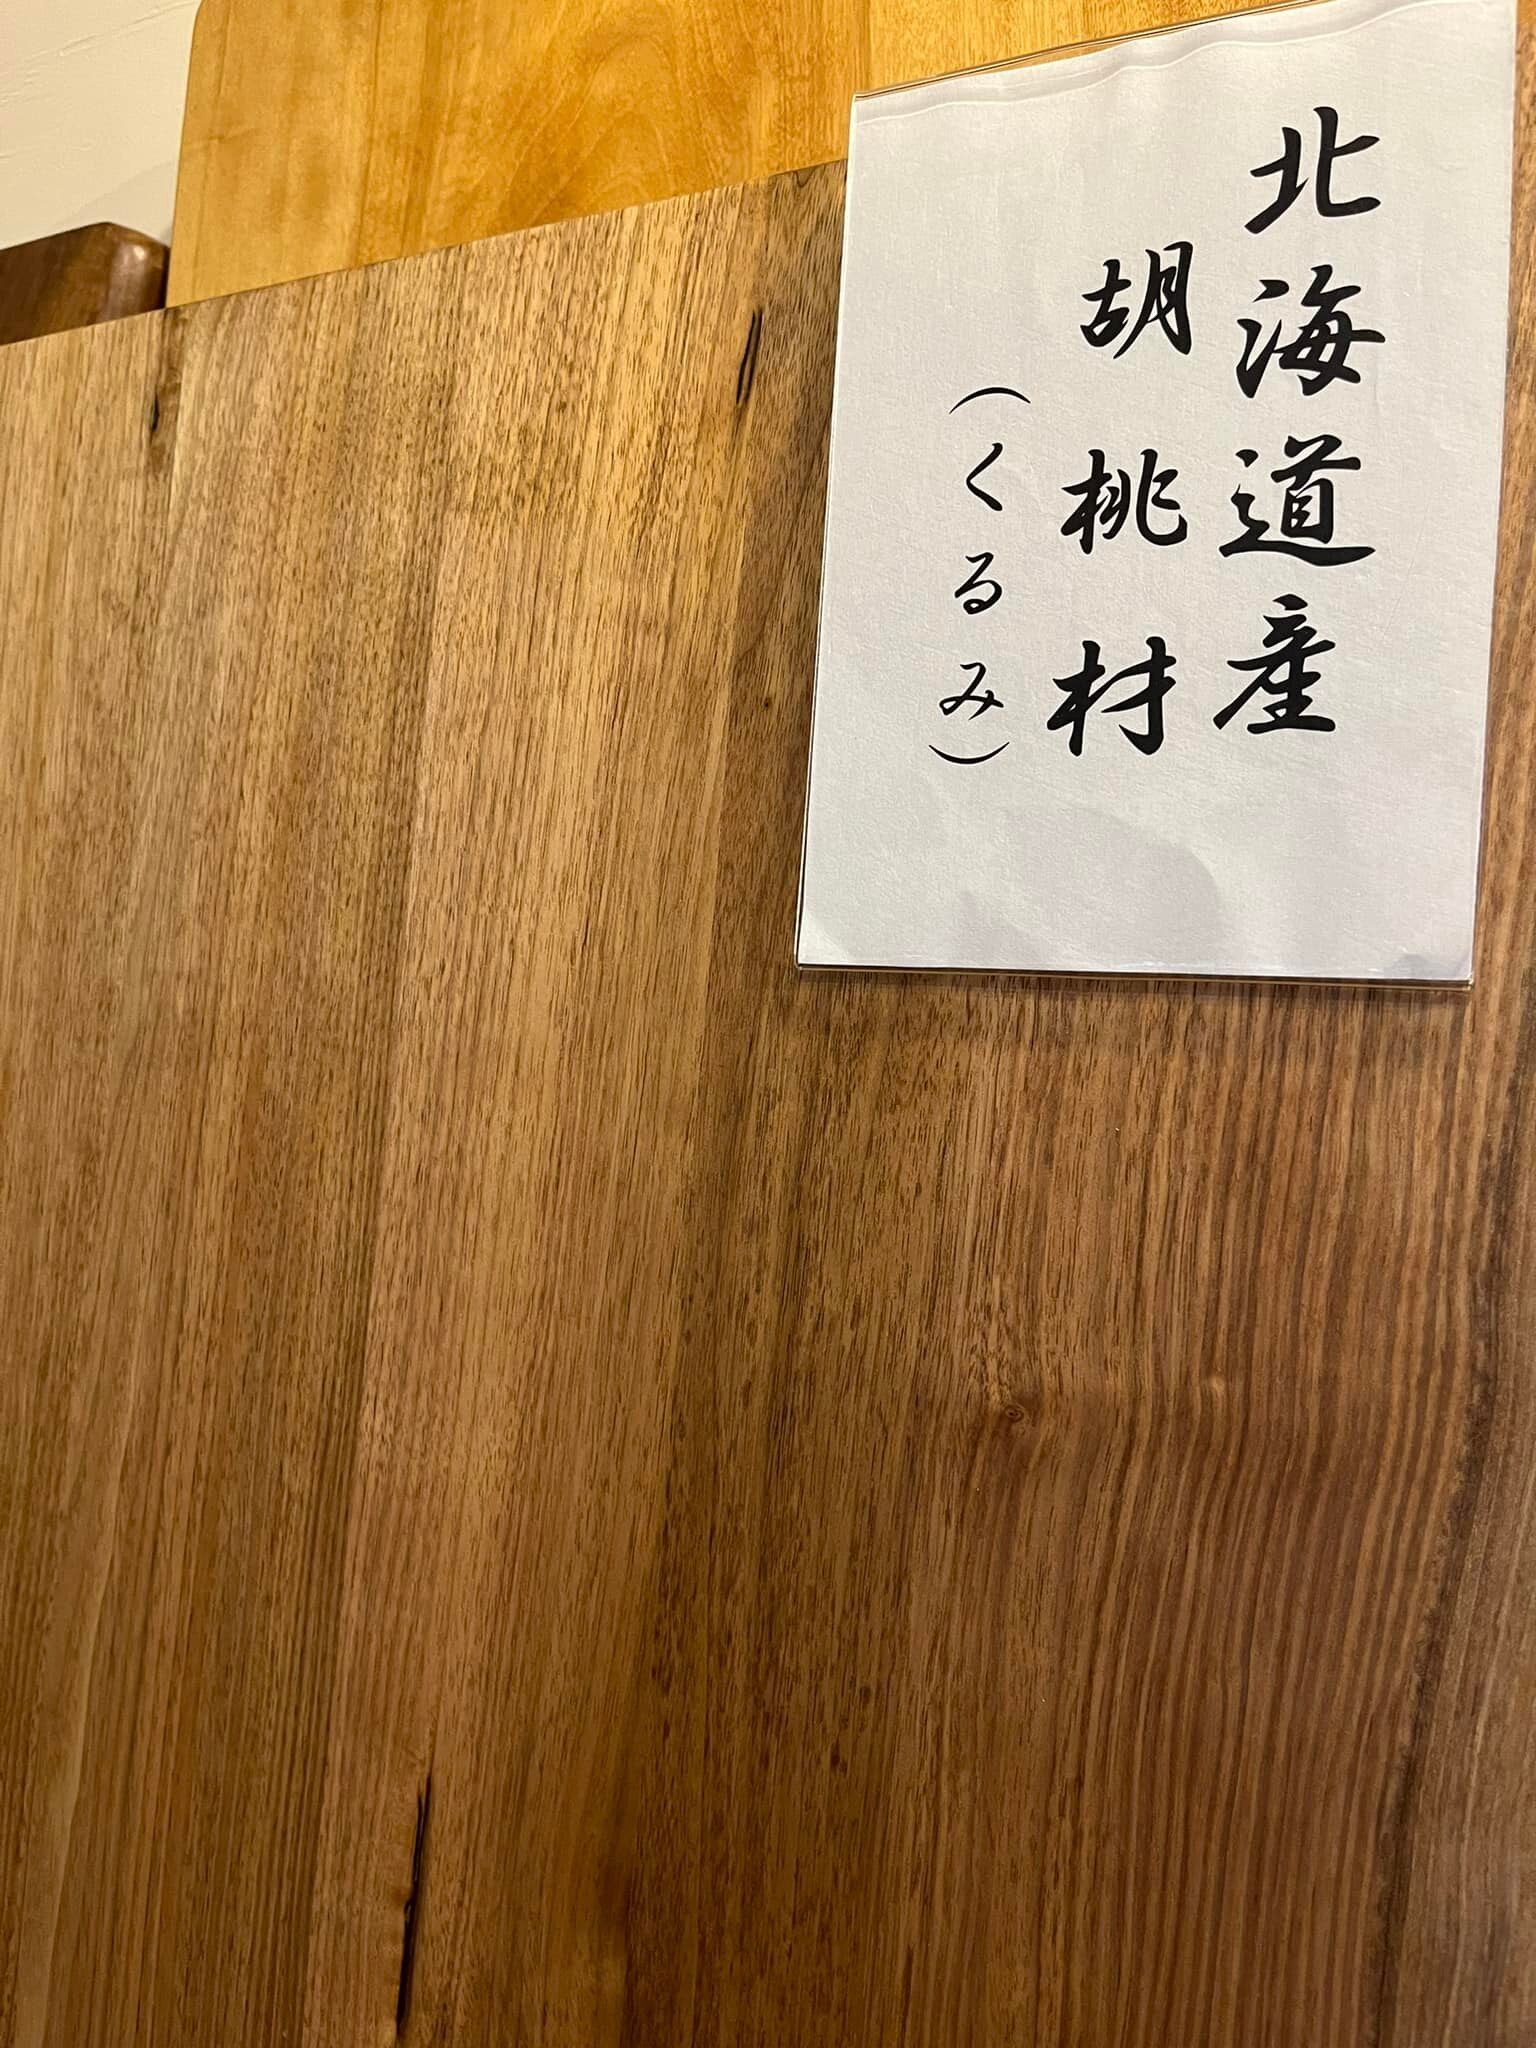 北海道産
胡桃材
（くるみ）